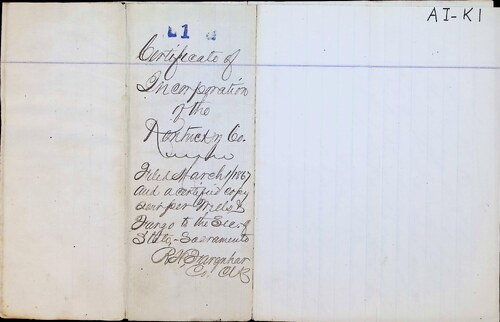 AI-K1
L1
Certificate of
Incorporation
of the
Kentucky Co.
Filed March 1/1867
and a certified copy
sent per Wells &
Fargo to the Secy
State, Sacramento
R N Farquhar
Co. Clk